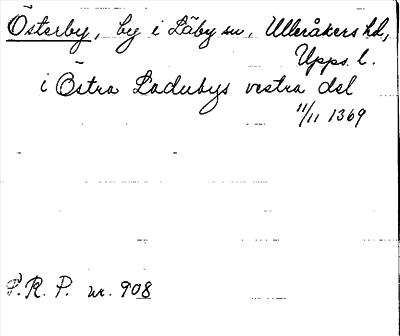 Österby, by i Läby sn, Ulleråkers hd,
Upps. l.
i Östra Ladubys vestra del
11/11 1369
P. R. P. nr. 908